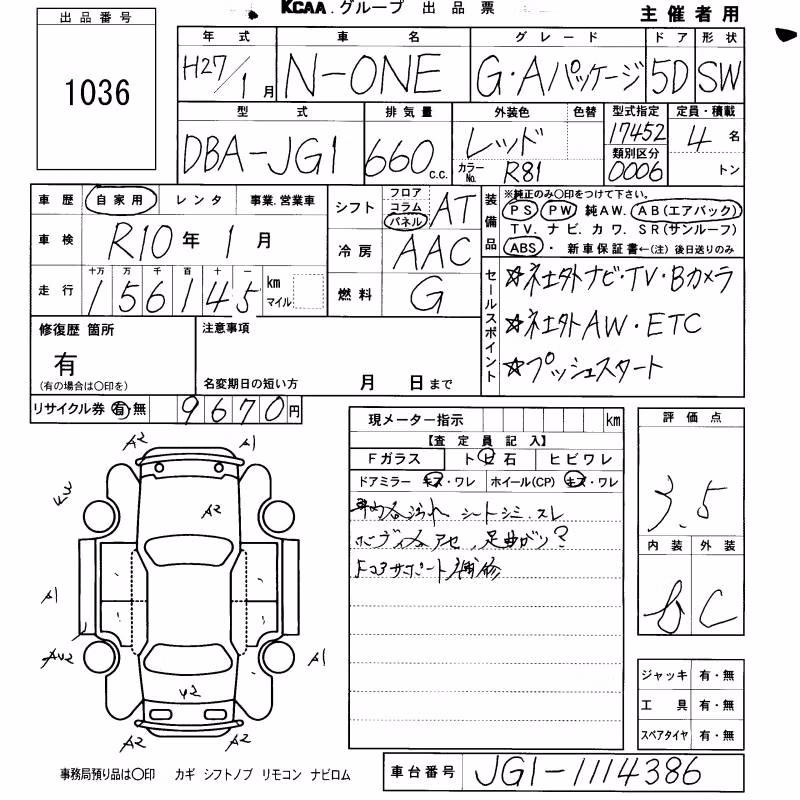 KCAA.グループ 出品票
主催者用
出品番号
1036
年式 車名 グレード ドア 形状
H27/1月 N-ONE G・Aパッケージ 5D SW
型式 排気量 外装色 色替 型式指定 定員・積載
DBA-JG1 660c.c. レッド 17452 4名
カラーNo. R81 類別区分 0006 トン
車歴 自家用 レンタ 事業.営業車
車検 R10年 1月
走行 十万 万 千 百 十 一
156145 km マイル
シフト フロア コラム パネル AT
冷房 AAC
燃料 G
装備品
※純正のみ○印をつけて下さい。
PS PW 純AW. AB(エアバック)
TV. ナビ. カワ. SR(サンルーフ)
ABS・新車保証書←(注)後日送りのみ
セールスポイント
☆社外ナビ・TV・Bカメラ
☆社外AW・ETC
☆プッシュスタート
修復歴 箇所
有
(有の場合は○印を)
注意事項
名変期日の短い方 月 日まで
リサイクル券 有 無 9670円
現メーター指示 km
【査定員記入】
Fガラス トビ石 ヒビワレ
ドアミラー キズ・ワレ ホイール(CP) キズ・ワレ
汚れ シートシミ.スレ
足曲がり?
サポート補修
評価点
3.5
内装 外装
B C
ジャッキ 有・無
工具 有・無
スペアタイヤ 有・無
A2 A1
A2
A1
A1
A2 A2
事務局預り品は○印 カギ シフトノブ リモコン ナビロム
車台番号 JG1-1114386